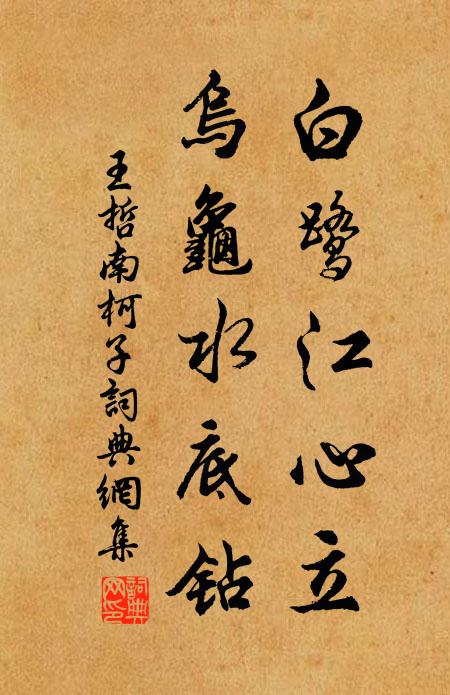 白鹭江心立
烏龜水底钻
王哲南柯子詞典網集
詞典
网印